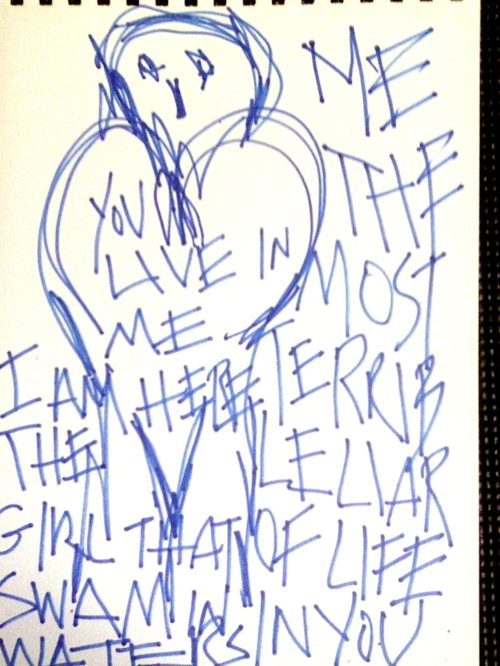 YOU
LIVE IN
ME
I AM HERE
THE
GIRL THAT
SWAM IN
WATERS
ME
THE
MOST
TERRIB
LE LIAR
OF LIFE
IN YOU